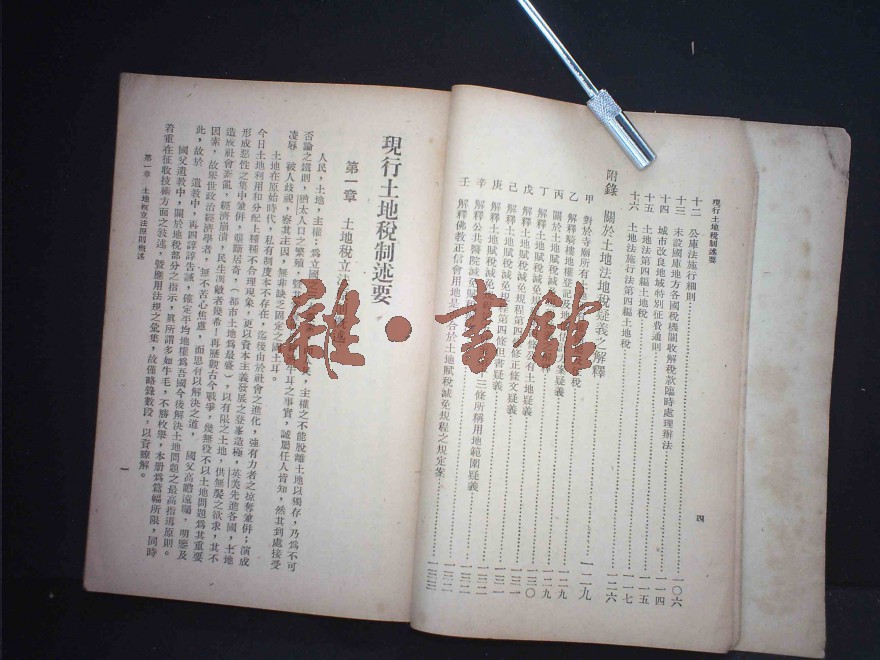 現行土地稅制述要
十二 公庫法施行細則 一〇六
十三 未設國庫地方各國稅機關收解稅款臨時處理辦法
十四 城市改良地域特別征費通則 一一四
十五 土地法第四編土地稅 一一五
十六 土地法施行法第四編土地稅 一一七
附錄 關於土地法地稅疑義之解釋 一二六
甲 對於寺廟所有 稅 一二九
乙 解釋騎樓地權登記及地 疑義
丙 關於土地賦稅減免規 一二九
丁 解釋土地賦稅減免規 一二九
戊 解釋土地賦稅減免規 公有土地疑義 一三〇
己 解釋土地賦稅減免規程第四 修正條文疑義 一三一
庚 解釋土地賦稅減免規程第四條但書疑義 一三一
辛 解釋公共醫院減免 三條所稱用地範圍疑義 一三二
壬 解釋佛教正信會用地是 合於土地賦稅減免規程之規定案
四
現行土地稅制述要
第一章 土地稅立法
人民,土地,主權;為立國 主權之不能脫離土地以獨存,乃為不可
否論之鐵則,猶太人口之繁殖, 牛耳之事實,誠屬任人皆知,然其到處接受
凌辱,被人歧視,察其主因,無非缺乏固定之國土耳。
土地在原始時代,私有制度本不存在,迄後由於社會之進化,強有力者之掠奪兼併;演成
今日土地利用和分配上種種不合理現象,更以資本主義發展之登峯造極,英美先進各國,土地
形成惡性之集中兼併,壟斷居奇,(都市土地為最盛),以有限之土地,供無饜之欲求,其不
造成社會紊亂,經濟崩潰,民生凋敝者幾希!再歷觀古今戰爭,幾無役不以土地問題為其重要
因素,故舉世政治經濟學者,無不苦心焦慮,而思有以解決之道, 國父高瞻遠矚,明鑒及
此,故於 遺教中,再四諄諄告誡,確定平均地權為吾國今後解決土地問題之最高指導原則。
國父遺教中,關於地稅部分之指示,眞所謂多如牛毛,不勝枚舉,本冊為篇幅所限,同時
着重在征收技術方面之敘述,暨應用法規之彙集,故僅略錄數段,以資瞭解。
第一章 土地稅立法原則概述
一
雜·書館